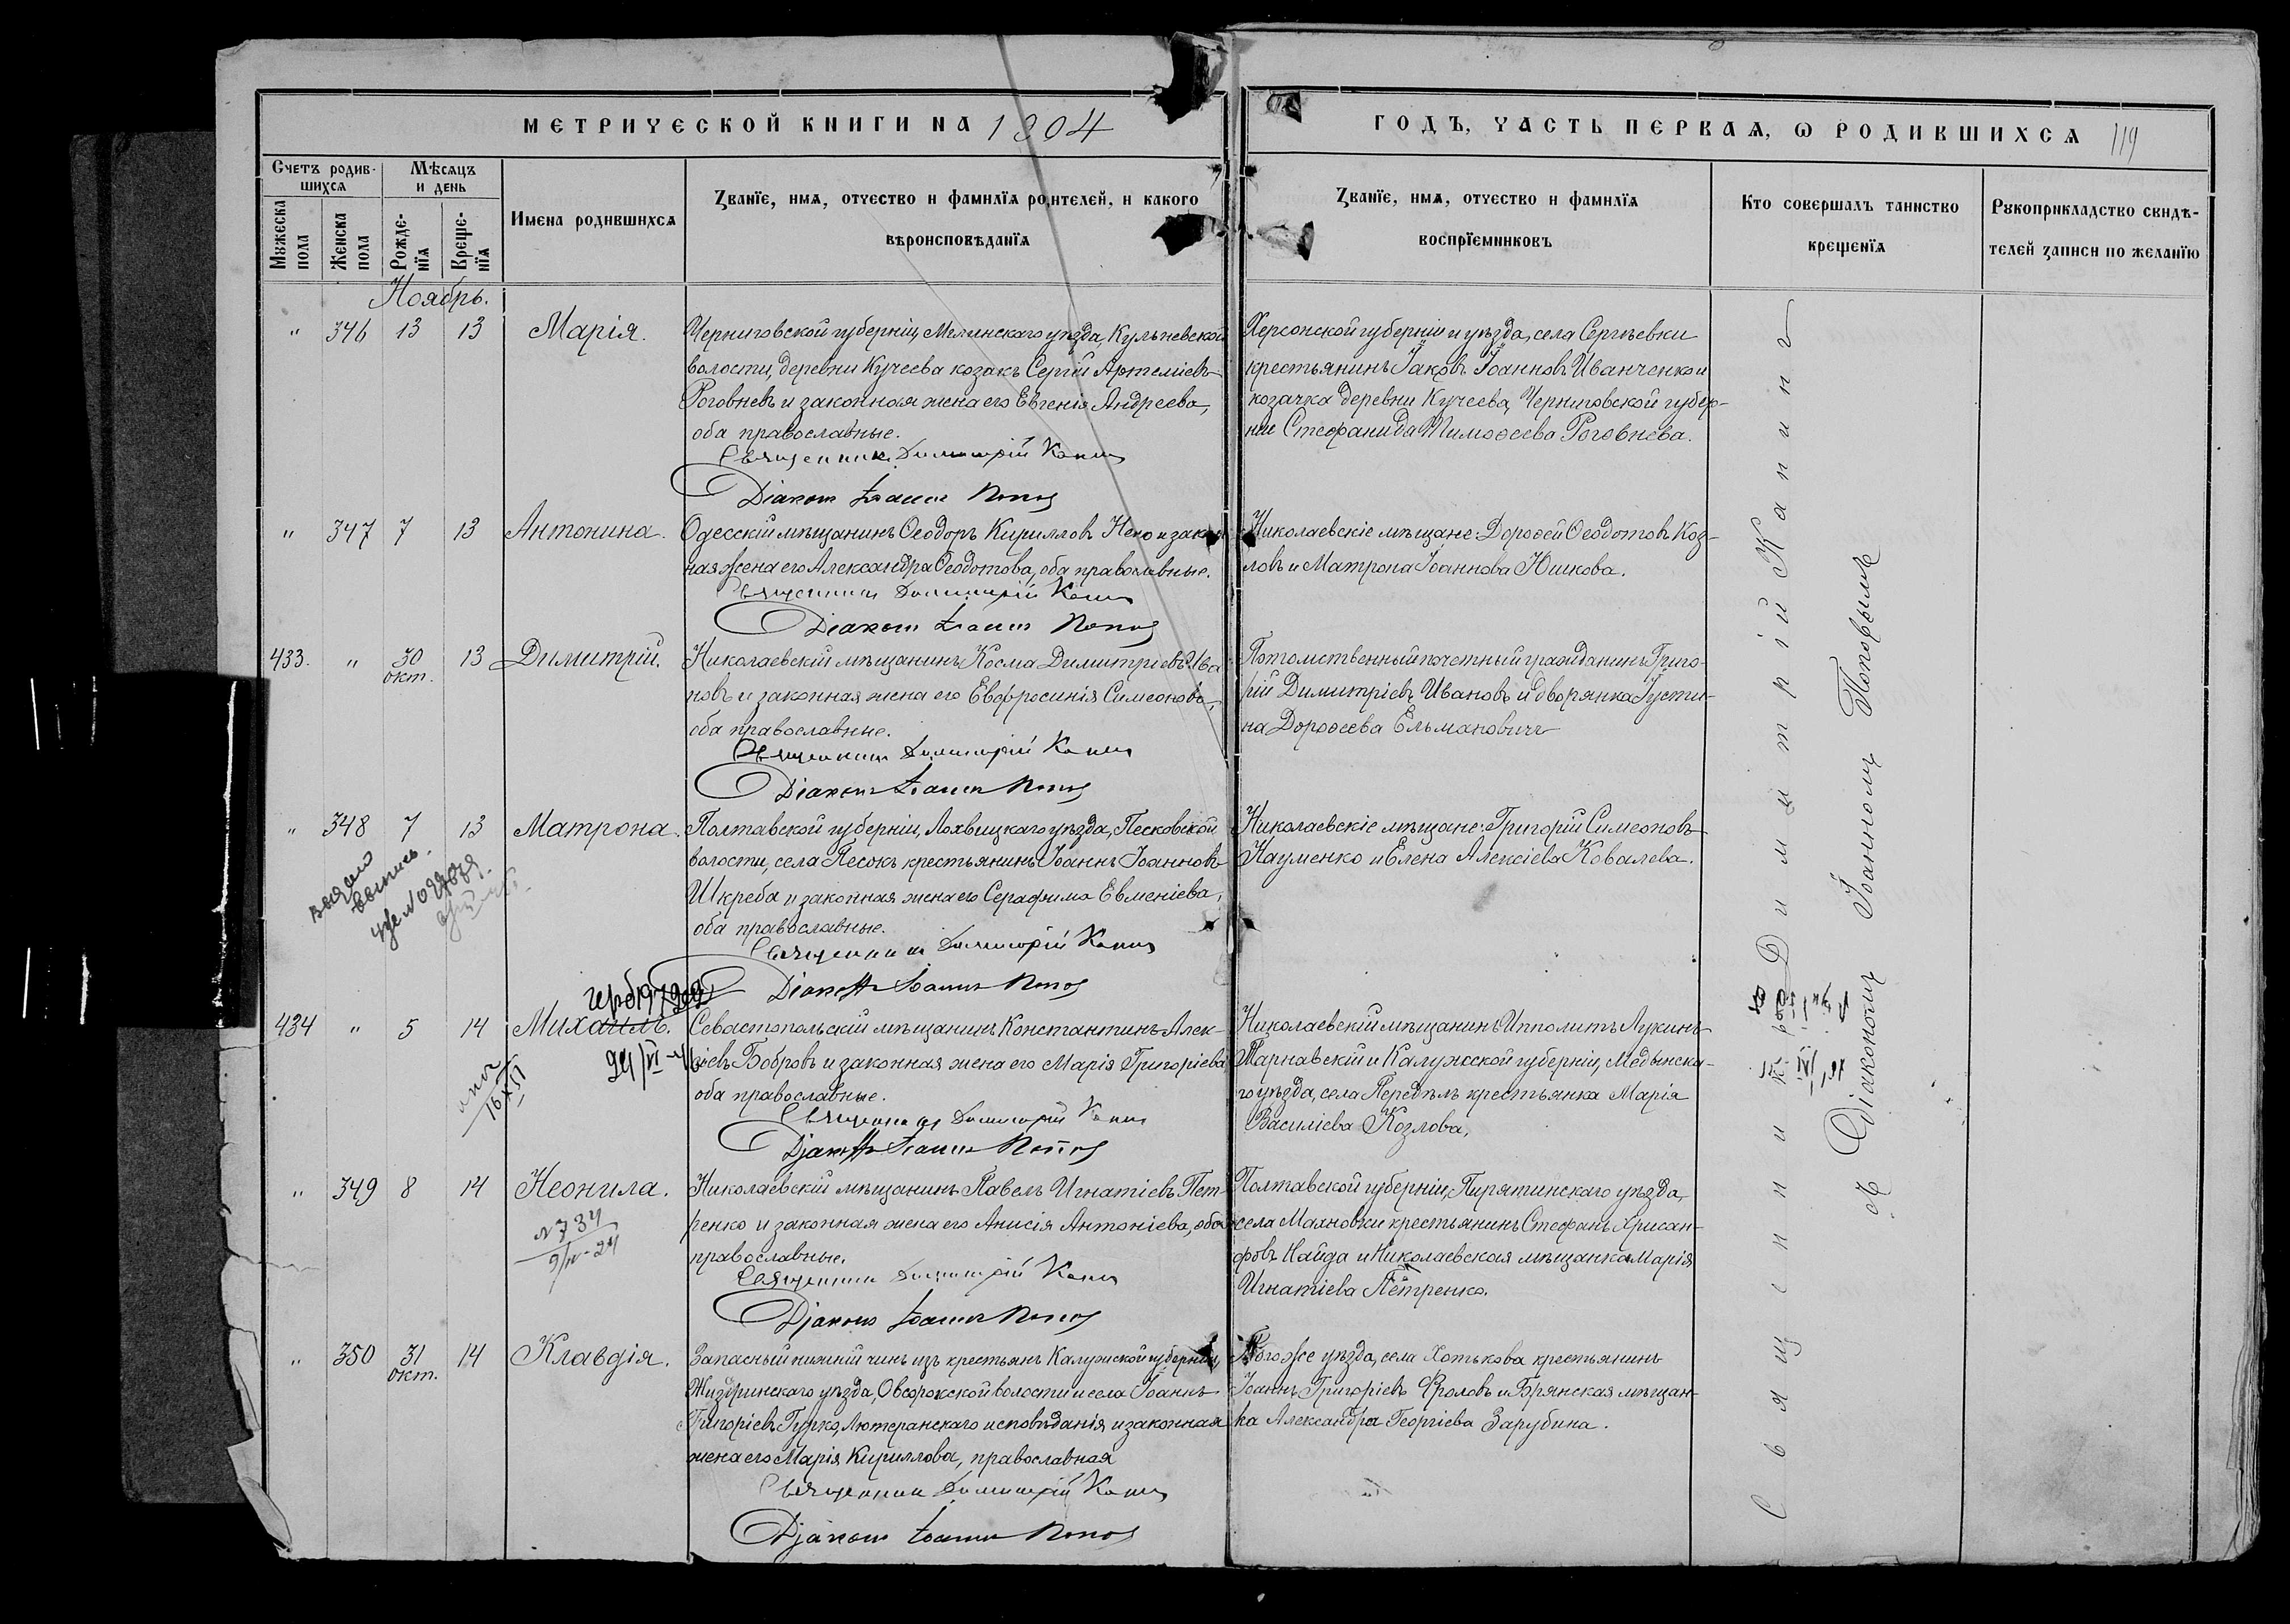 МЕТРИЧЕСКОЙ КНИГИ НА 1904
ГОДЪ, ЧАСТЬ ПЕРВАЯ, Ѡ РОДИВШИХСѦ 119
Счетъ родив-
шихсѧ
Мѣсѧцъ
и день
Мужеска
пола
Женска
пола
Рожде-
нїѧ
Креще-
нїѧ
Имена родившихсѧ
Званїе, имѧ, отчество и фамилїѧ родителей, и какого
вѣроисповѣданїѧ
Званїе, имѧ, отчество и фамилїѧ
воспрїемниковъ
Кто совершалъ таинство
крещенїѧ
Рукоприкладство свидѣ-
телей записи по желанїю
Ноябрь.
" 346 13 13 Марія.
Черниговской губерніи, Мглинскаго уѣзда, Кульневской
волости, деревни Кучеева козакъ Сергій Артеміевъ
Роговневъ и законная жена его Евгенія Андреева,
оба православные.
Священникъ Димитрій
Діаконъ Іоаннъ Поповъ
Херсонской губерніи и уѣзда, села Сергѣевки
крестьянинъ Іаковъ Іоанновъ Иванченко и
козачка деревни Кучеева, Черниговской губер-
ніи Стефанида Тимоѳеева Роговнева.
" 347 7 13 Антонина.
Одесскій мѣщанинъ Ѳеодоръ Кирилловъ и закон
ная жена его Александра Ѳеодотова, оба православные.
Священникъ Димитрій
Діаконъ Іоаннъ Поповъ
Николаевскіе мѣщане: Дороѳей Ѳеодотовъ Коз-
ловъ и Матрона Іоаннова Юшкова.
433. " 30 окт. 13 Димитрій.
Николаевскій мѣщанинъ Косма Димитріевъ Ива
новъ и законная жена его Евфросинія Симеонова,
оба православные.
Священникъ Димитрій
Діаконъ Іоаннъ Поповъ
Потомственный почетный гражданинъ Григо-
рій Димитріевъ Ивановъ и дворянка Іусти-
на Дороѳеева Ельмановичъ
" 348 7 13 Матрона.
Полтавской губерніи, Лохвицкаго уѣзда, Песковской
волости, села Песокъ крестьянинъ Іоаннъ Іоанновъ
Шкреба и законная жена его Серафима Евменіева,
оба православные.
Священникъ Димитрій
Діаконъ Іоаннъ Поповъ
Николаевскіе мѣщане: Григорій Симеоновъ
Науменко и Елена Алексіева Ковалева.
434 " 5 14 Михаилъ.
Севастопольскій мѣщанинъ Константинъ Алек-
сіевъ Бобровъ и законная жена его Марія Григоріева
оба православные.
Священникъ Димитрій
Діаконъ Іоаннъ Поповъ
Николаевскій мѣщанинъ Ипполитъ Лукинъ
Тарнавскій и Калужской губерніи, Медынска-
го уѣзда, села Передѣлъ крестьянка Марія
Василіева Козлова.
" 349 8 14 Неонила.
№ 734
Николаевскій мѣщанинъ Павелъ Игнатіевъ Пет
ренко и законная жена его Анисія Антоніева, оба
православные.
Священникъ Димитрій
Діаконъ Іоаннъ Поповъ
Полтавской губерніи, Пирятинскаго уѣзда,
села Махновки крестьянинъ Стефанъ Хрисан-
фовъ Найда и Николаевская мѣщанка Марія
Игнатіева Петренко.
" 350 31 окт. 14 Клавдія.
Запасный нижній чинъ изъ крестьянъ Калужской губерніи,
Жиздринскаго уѣзда, Овсорокской волости и села Іоаннъ
Григоріевъ Гурко, Лютеранскаго исповѣданія и законная
жена его Марія Кириллова, православная
Священникъ Димитрій
Діаконъ Іоаннъ Поповъ
Того же уѣзда, села Хотькова крестьянинъ
Іоаннъ Григоріевъ Фроловъ и Брянская мѣщан-
ка Александра Георгіева Зарубина.
Священникъ Димитрій
съ Діакономъ Іоанномъ Поповымъ